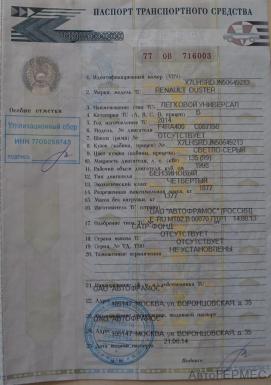 ПАСПОРТ ТРАНСПОРТНОГО СРЕДСТВА
77 ОВ 716003
1. Идентификационный номер (VIN) X7LHSRDJN50649213
2. Марка, модель ТС RENAULT DUSTER
Особые отметки
3. Наименование (тип ТС) ЛЕГКОВОЙ УНИВЕРСАЛ
4. Категория ТС (А, В, С, D, прицеп) B
5. Год изготовления ТС 2014
6. Модель, № двигателя F4RA400
Утилизационный сбор
7. Шасси (рама) № ОТСУТСТВУЕТ
8. Кузов (кабина, прицеп) № X7LHSRDJN50649213
ИНН 7709259743
9. Цвет кузова (кабины, прицепа) СВЕТЛО-СЕРЫЙ
10. Мощность двигателя, л. с. (кВт) 135 (99)
подпись
11. Рабочий объем двигателя, куб. см 1998
12. Тип двигателя БЕНЗИНОВЫЙ
13. Экологический класс ЧЕТВЕРТЫЙ
14. Разрешенная максимальная масса, кг 1877
15. Масса без нагрузки, кг 1377
16. Изготовитель ТС (страна)
ОАО "АВТОФРАМОС" (РОССИЯ)
17. Одобрение типа ТС №
18. Страна вывоза ТС ОТСУТСТВУЕТ
19. Серия, № ТД, ТПО ОТСУТСТВУЕТ
20. Таможенные ограничения НЕ УСТАНОВЛЕНЫ
ОАО "АВТОФРАМОС"
22. Адрес
109147, МОСКВА, УЛ. ВОРОНЦОВСКАЯ, д. 35
ОАО "АВТОФРАМОС"
24. Адрес
109147, МОСКВА, УЛ. ВОРОНЦОВСКАЯ, д. 35
25. Дата выдачи паспорта
21.06.14
Подпись
АвтоГЕРМЕС